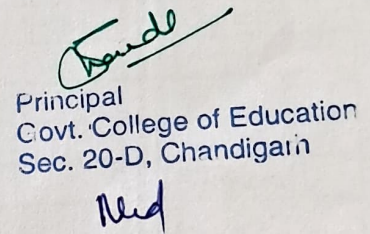 Principal
Govt. College of Education
Sec. 20-D, Chandigarh